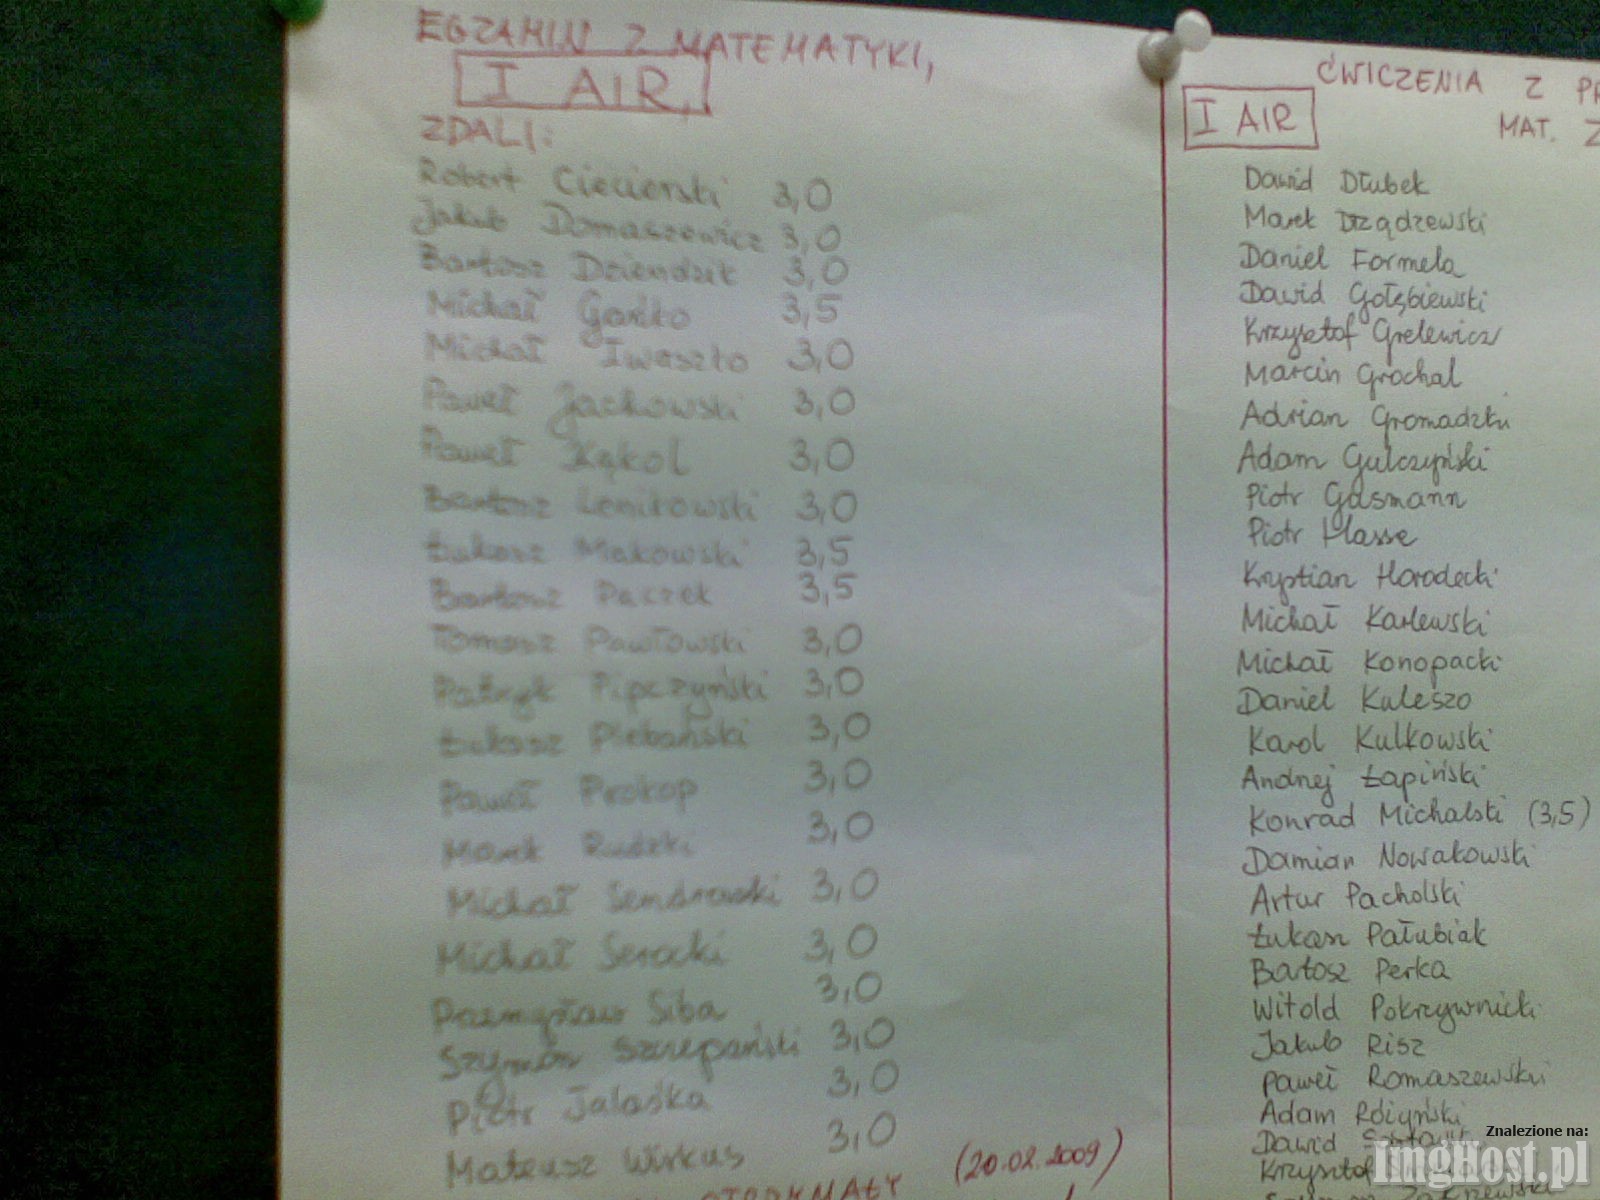 EGZAMIN Z MATEMATYKI,
I AIR,
ZDALI:
Robert Ciecierski 3,0
Jakub Domaszewicz 3,0
Bartosz Dziendzik 3,0
Michał 3,5
Michał Iwaszko 3,0
Paweł Jackowski 3,0
Paweł Kąkol 3,0
Bartosz Lenikowski 3,0
Łukasz Makowski 3,5
Bartosz Paczek 3,5
Tomasz Pawłowski 3,0
Patryk Pipczyński 3,0
Łukasz Plebański 3,0
Paweł Prokop 3,0
Marek Rudzki 3,0
Michał 3,0
Michał Seracki 3,0
Przemysław Siba 3,0
Szymon Szczepański 3,0
Piotr 3,0
Mateusz Wirkus 3,0
(20.02.2009)
ĆWICZENIA Z
I AIR
MAT.
Dawid Dłubek
Marek Drządzewski
Daniel Formela
Dawid Gołębiewski
Krzysztof Grelewicz
Marcin Grochal
Adrian Gromadzki
Adam Gulczyński
Piotr Gusmann
Piotr Hasse
Krystian Horodecki
Michał Karlewski
Michał Konopacki
Daniel Kuleszo
Karol Kulkowski
Andrzej Łapiński
Konrad Michalski (3,5)
Damian Nowakowski
Artur Pacholski
Łukasz Pałubiak
Bartosz Perka
Witold Pokrzywnicki
Jakub Risz
Paweł Romaszewski
Adam Różyński
Dawid
Krzysztof
Znalezione na:
ImgHost.pl